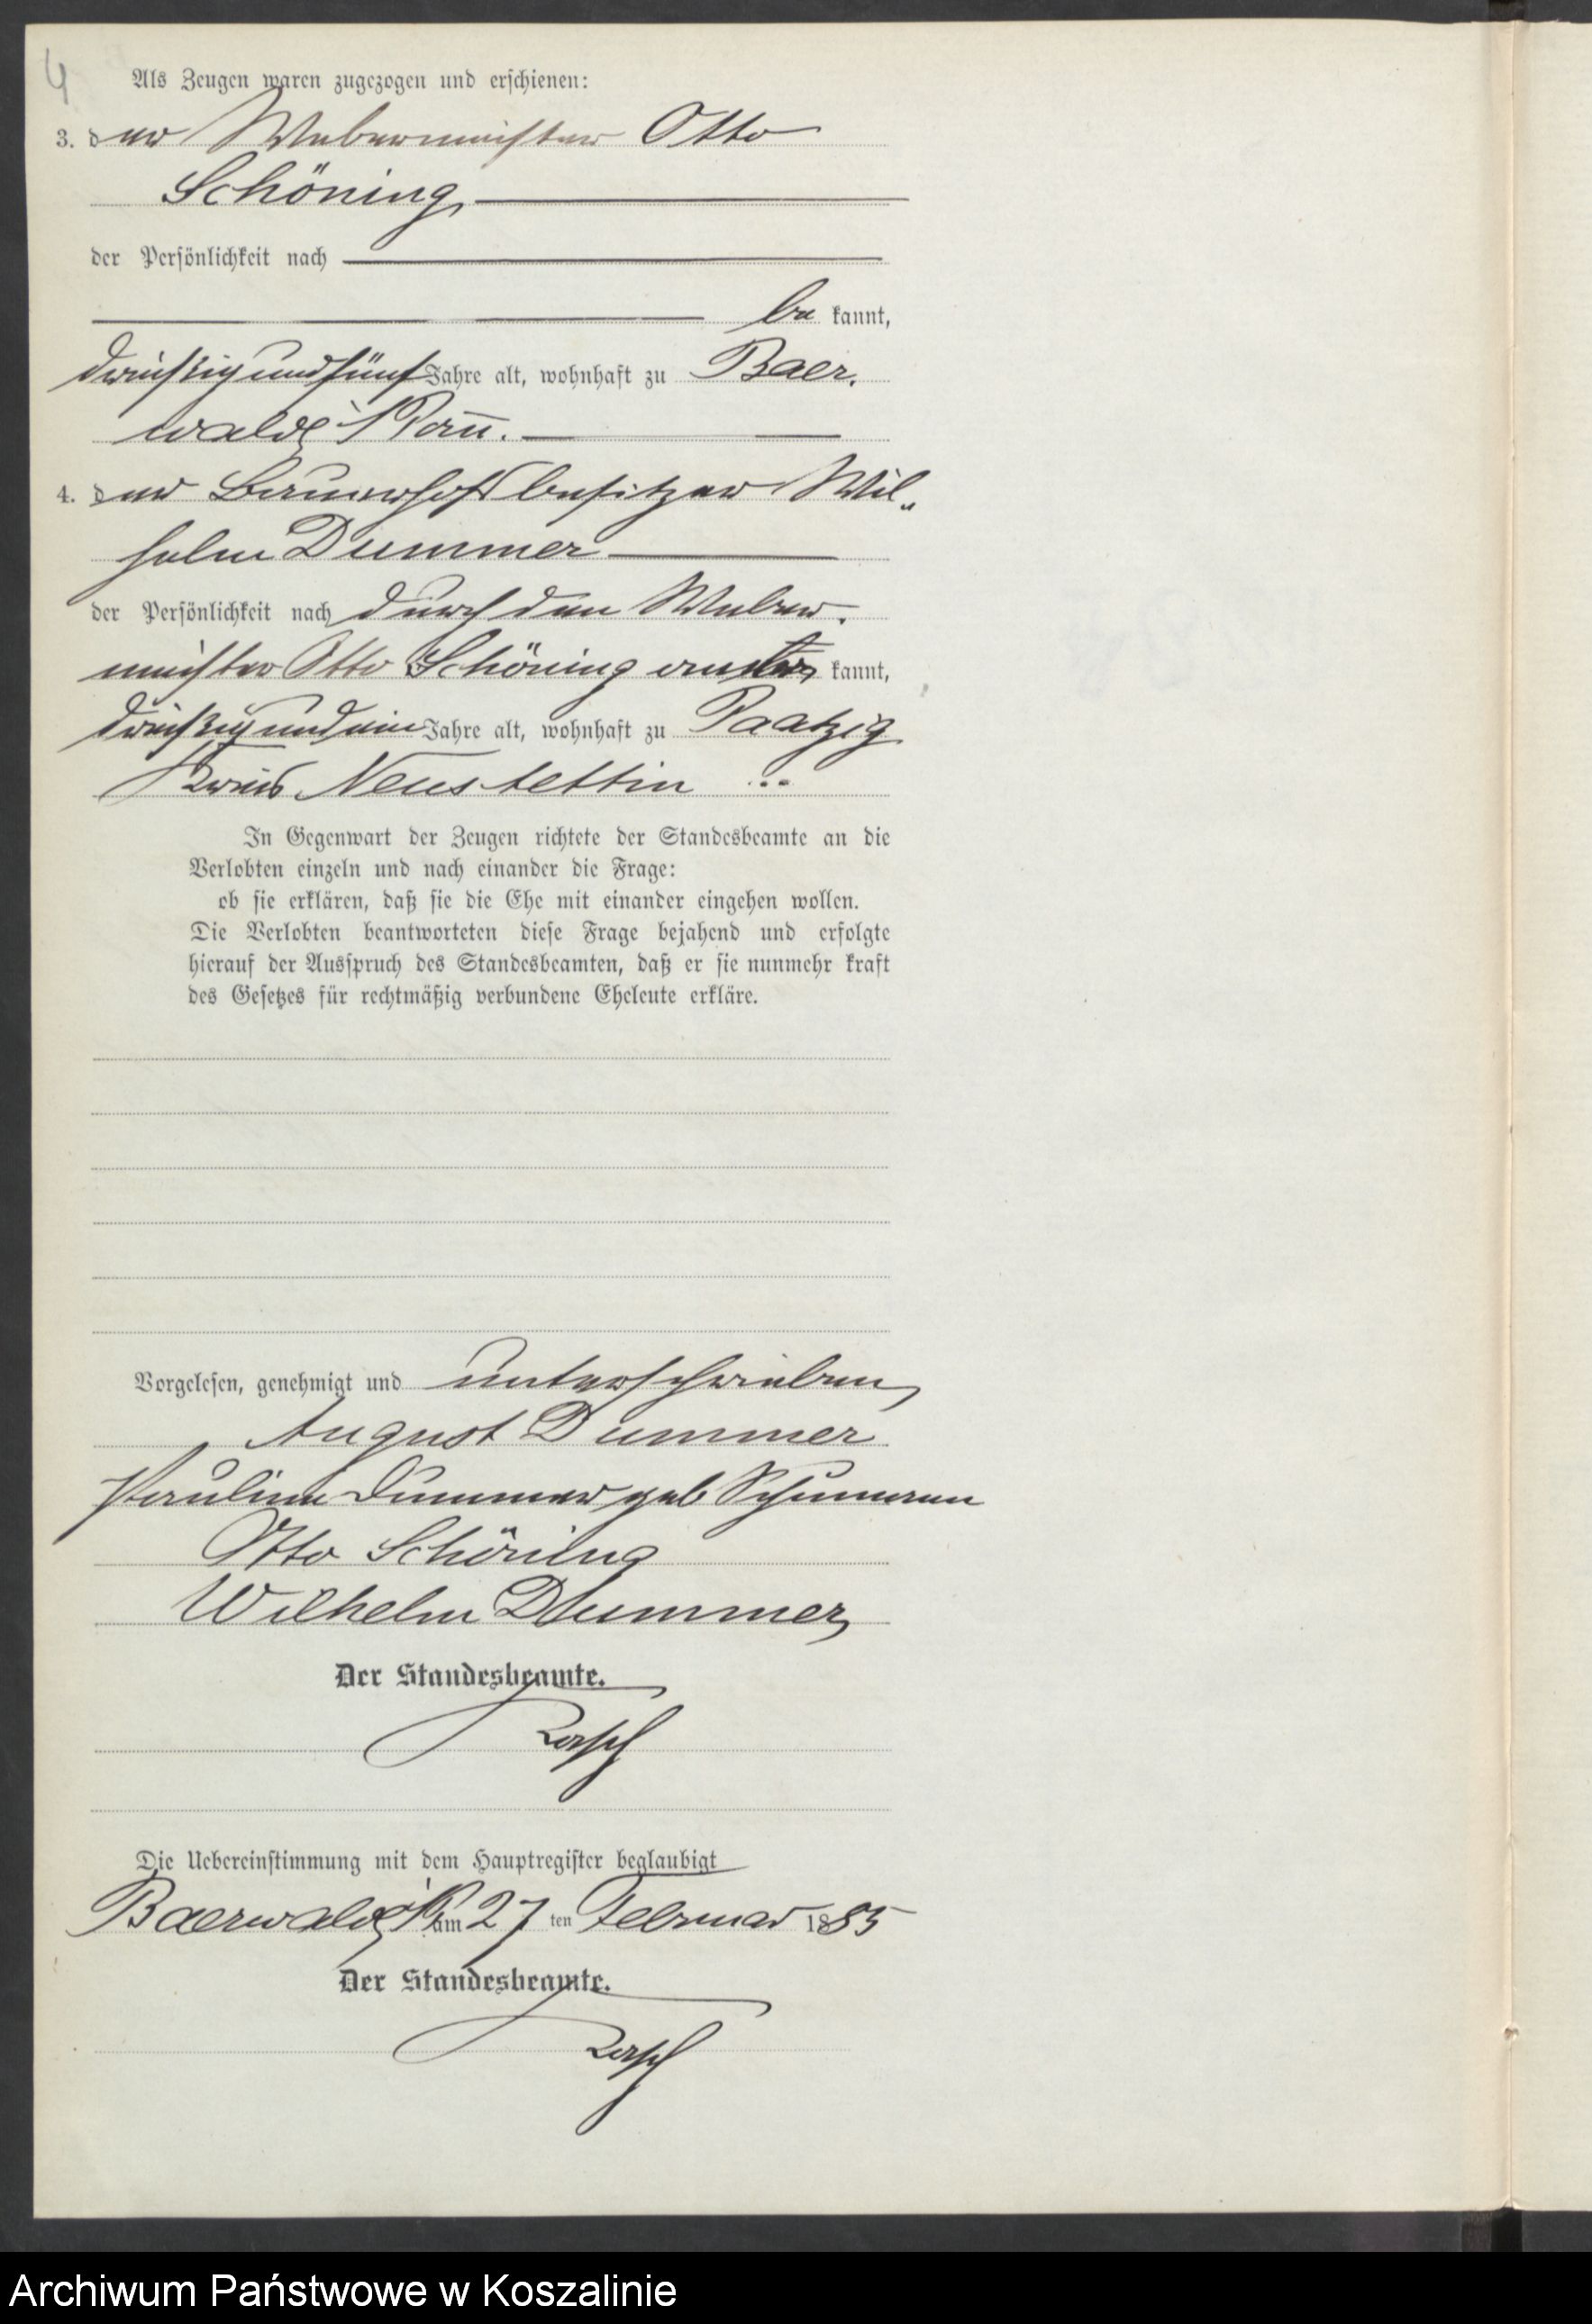 4
Als Zeugen waren zugezogen und erschienen:
3. der Webermeister Otto
Schöning,
der Persönlichkeit nach
be kannt,
dreißig und fünf Jahre alt, wohnhaft zu Baer-
walde i/Pom.
4. der Bauerhofsbesitzer Wil-
helm Dummer
der Persönlichkeit nach durch den Weber-
meister Otto Schöning aner kannt,
dreißig und ein Jahre alt, wohnhaft zu Paatzig
Kreis Neustettin
In Gegenwart der Zeugen richtete der Standesbeamte an die
Verlobten einzeln und nach einander die Frage:
ob sie erklären, daß sie die Ehe mit einander eingehen wollen.
Die Verlobten beantworteten diese Frage bejahend und erfolgte
hierauf der Ausspruch des Standesbeamten, daß er sie nunmehr kraft
des Gesetzes für rechtmäßig verbundene Eheleute erkläre.
Vorgelesen, genehmigt und unterschrieben
August Dummer
Pauline Dummer geb
Otto Schöning
Wilhelm Dummer
Der Standesbeamte.
Die Uebereinstimmung mit dem Hauptregister beglaubigt
Baerwalde i/P. am 27 ten Februar 1885
Der Standesbeamte.
Archiwum Państwowe w Koszalinie